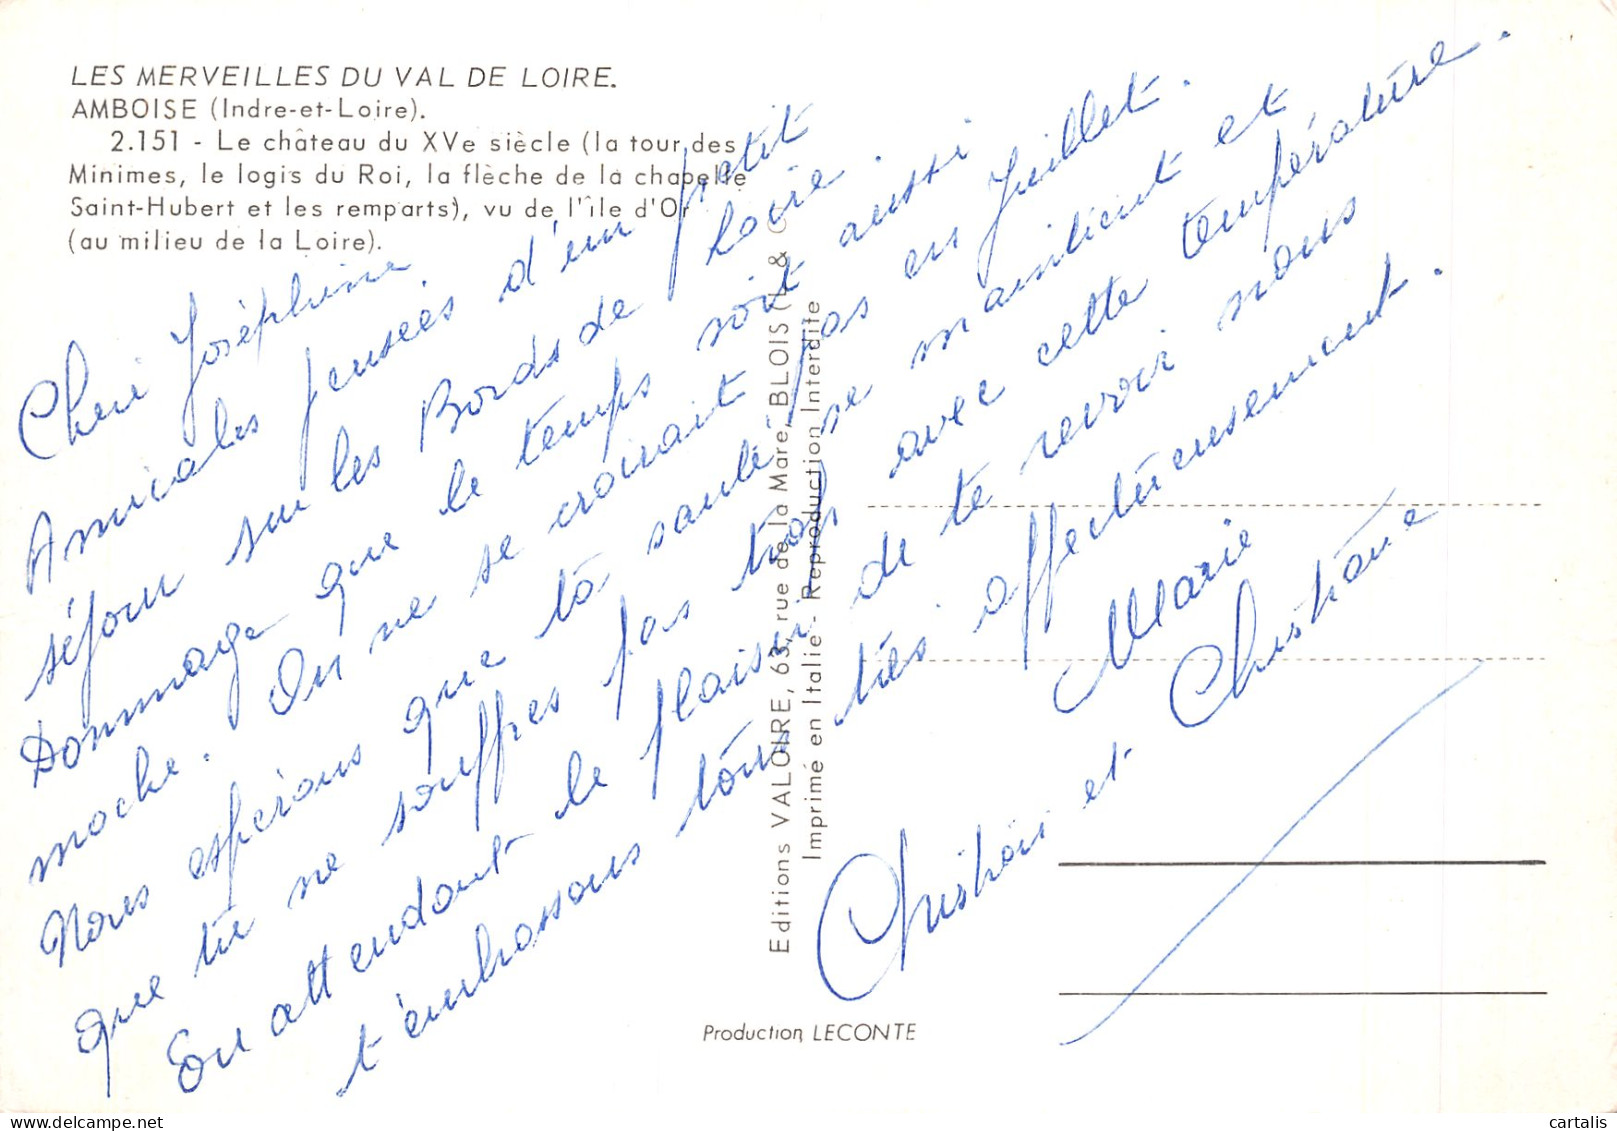 LES MERVEILLES DU VAL DE LOIRE.
AMBOISE (Indre-et-Loire).
2.151 - Le château du XVe siècle (la tour des
Minimes, le logis du Roi, la flèche de la chapelle
Saint-Hubert et les remparts), vu de l'île d'Or
(au milieu de la Loire).
Joséphine
Amicales pensées d'un petit
séjour sur les Bords de Loire.
Dommage que le temps soit aussi
moche. On ne se croirait pas en Juillet.
Nous espérons que ta santé se maintient et
que tu ne souffres pas trop avec cette température.
En attendant le plaisir de te revoir nous
t'embrassons tous très affectueusement.
Marie
Christian et Christiane
Editions VALOIRE, 63, rue de la Mare, BLOIS (L & C)
Imprimé en Italie - Reproduction Interdite
Production LECONTE
cartalis
www.delcampe.net